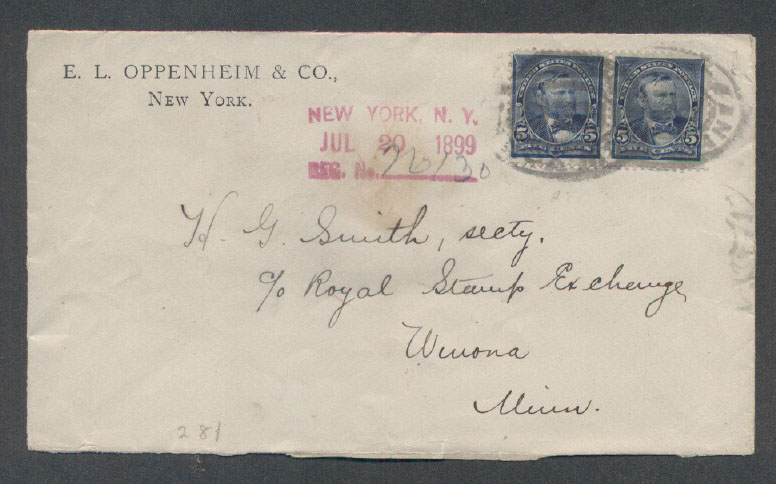 E. L. OPPENHEIM & CO.,
NEW YORK.
NEW YORK, N. Y.
JUL 20 1899
REG. No.
5 5
5 5
H. G. Smith, secty.
c/o Royal Stamp Exchange
Winona
Minn.
281